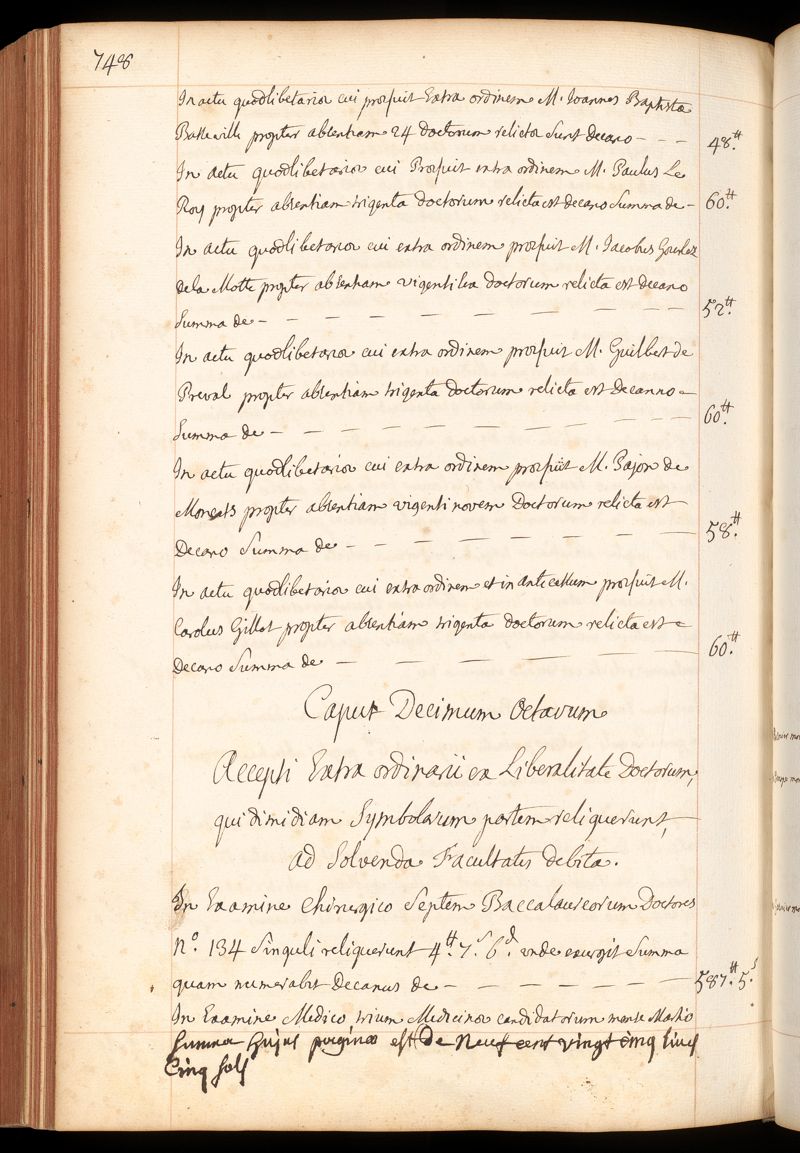 748
In actu quodlibetario cui præfuit Extra ordinem M. Ioannes Baptista
Basseville propter absentiam 24 doctorum relictæ sunt decano - - - 48.tt
In actu quodlibetario cui Præfuit extra ordinem M. Paulus Le
Roy propter absentiam triginta doctorum relicta est decano Summa de - 60.tt
In actu quodlibetario cui extra ordinem præfuit M. Iacobus Gourlez
de la Motte propter absentiam viginti sex doctorum relicta est decano
Summa de - - - - - - - - - 52.tt
In actu quodlibetario cui extra ordinem præfuit M. Guilbert de
Preval propter absentiam triginta doctorum relicta est Decanno -
Summa de - - - - - - - - - 60.tt
In actu quodlibetario cui extra ordinem præfuit M. Pajon de
Moncets propter absentiam viginti novem Doctorum relicta est
Decano Summa de - - - - - - - 58.tt
In actu quodlibetario cui extra ordinem et in antecessum præfuit M.
Carolus Gillot propter absentiam triginta doctorum relicta est -
Decano Summa de - - - - - - 60.tt
Caput Decimum Octavum
Accepti Extra ordinarii ex Liberalitate Doctorum,
qui dimidiam Symbolarum partem reliquerunt,
ad Solvenda Facultatis debita.
In Examine Chirurgico Septem Baccalaureorum Doctores
N.o 134 Singuli reliquerunt 4.tt 7.s 6.d unde exurgit Summa
quam numerabit Decanus de - - - - - - 587.tt 5.s
In Examine Medico trium Medicinæ candidatorum mense Martio
Summa hujus paginæ est De Neuf cent vingt cinq livres
Cinq sols